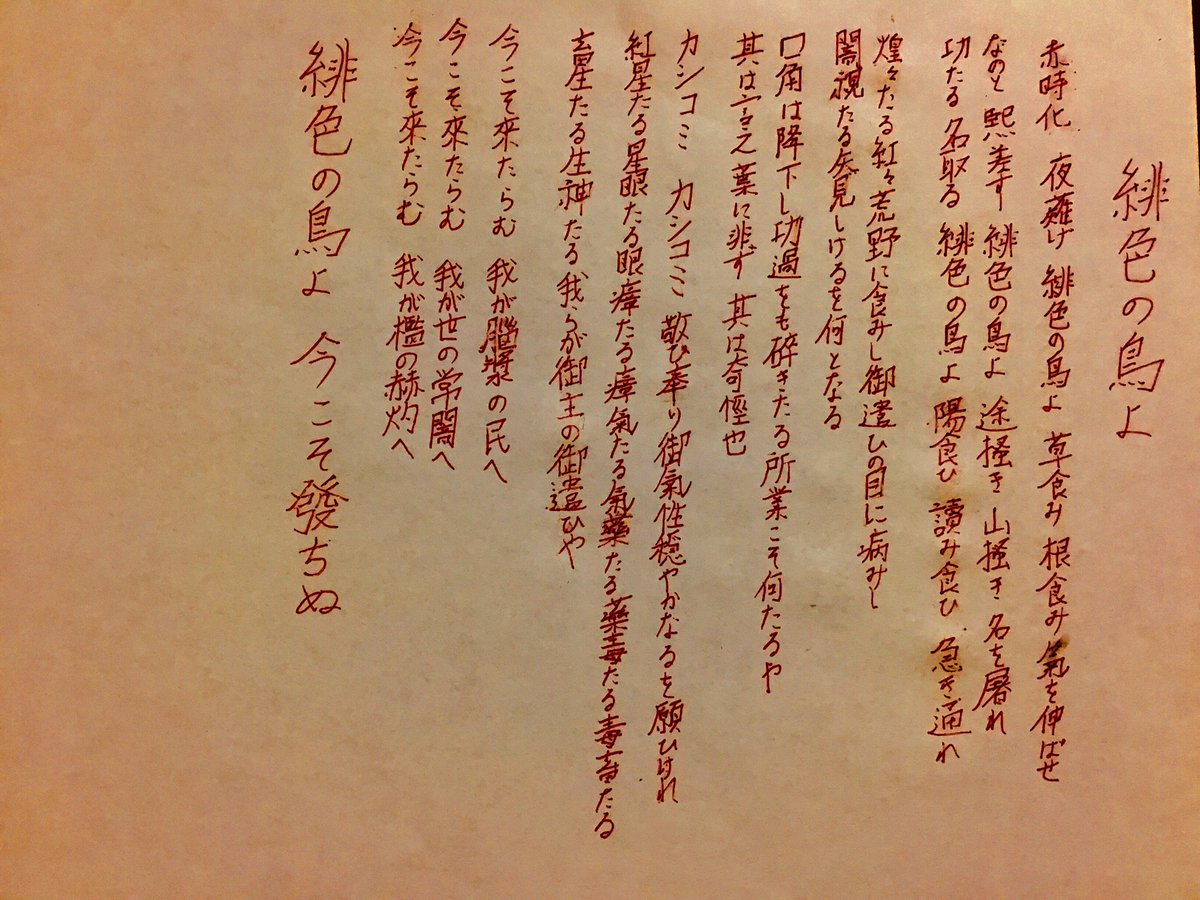 緋色の鳥よ
赤時化 夜薙げ 緋色の鳥よ 草食み 根食み 氣を伸ばせ
なのと 熙差す 緋色の鳥よ 途掻き 山掻き 名を屠れ
功たる 名取る 緋色の鳥よ 陽食ひ 讀み食ひ 急ぎ通れ
煌々たる紅々荒野に食みし御遣ひの目に病みし
闇視たる矢見しけるを何となる
口角は降下し功過をも砕きたる所業こそ何たるや
其は言之葉に非ず 其は奇怪也
カシコミ カシコミ 敬ひ奉り御氣性穏やかなるを願ひけれ
紅星たる星眼たる眼瘴たる瘴氣たる氣藥たる藥毒たる毒畜たる
玄星たる生神たる我らが御主の御遣ひや
今こそ来たらむ 我が脳漿の民へ
今こそ來たらむ 我が世の常闇へ
今こそ來たらむ 我が檻の赫灼へ
緋色の鳥よ 今こそ發ちぬ